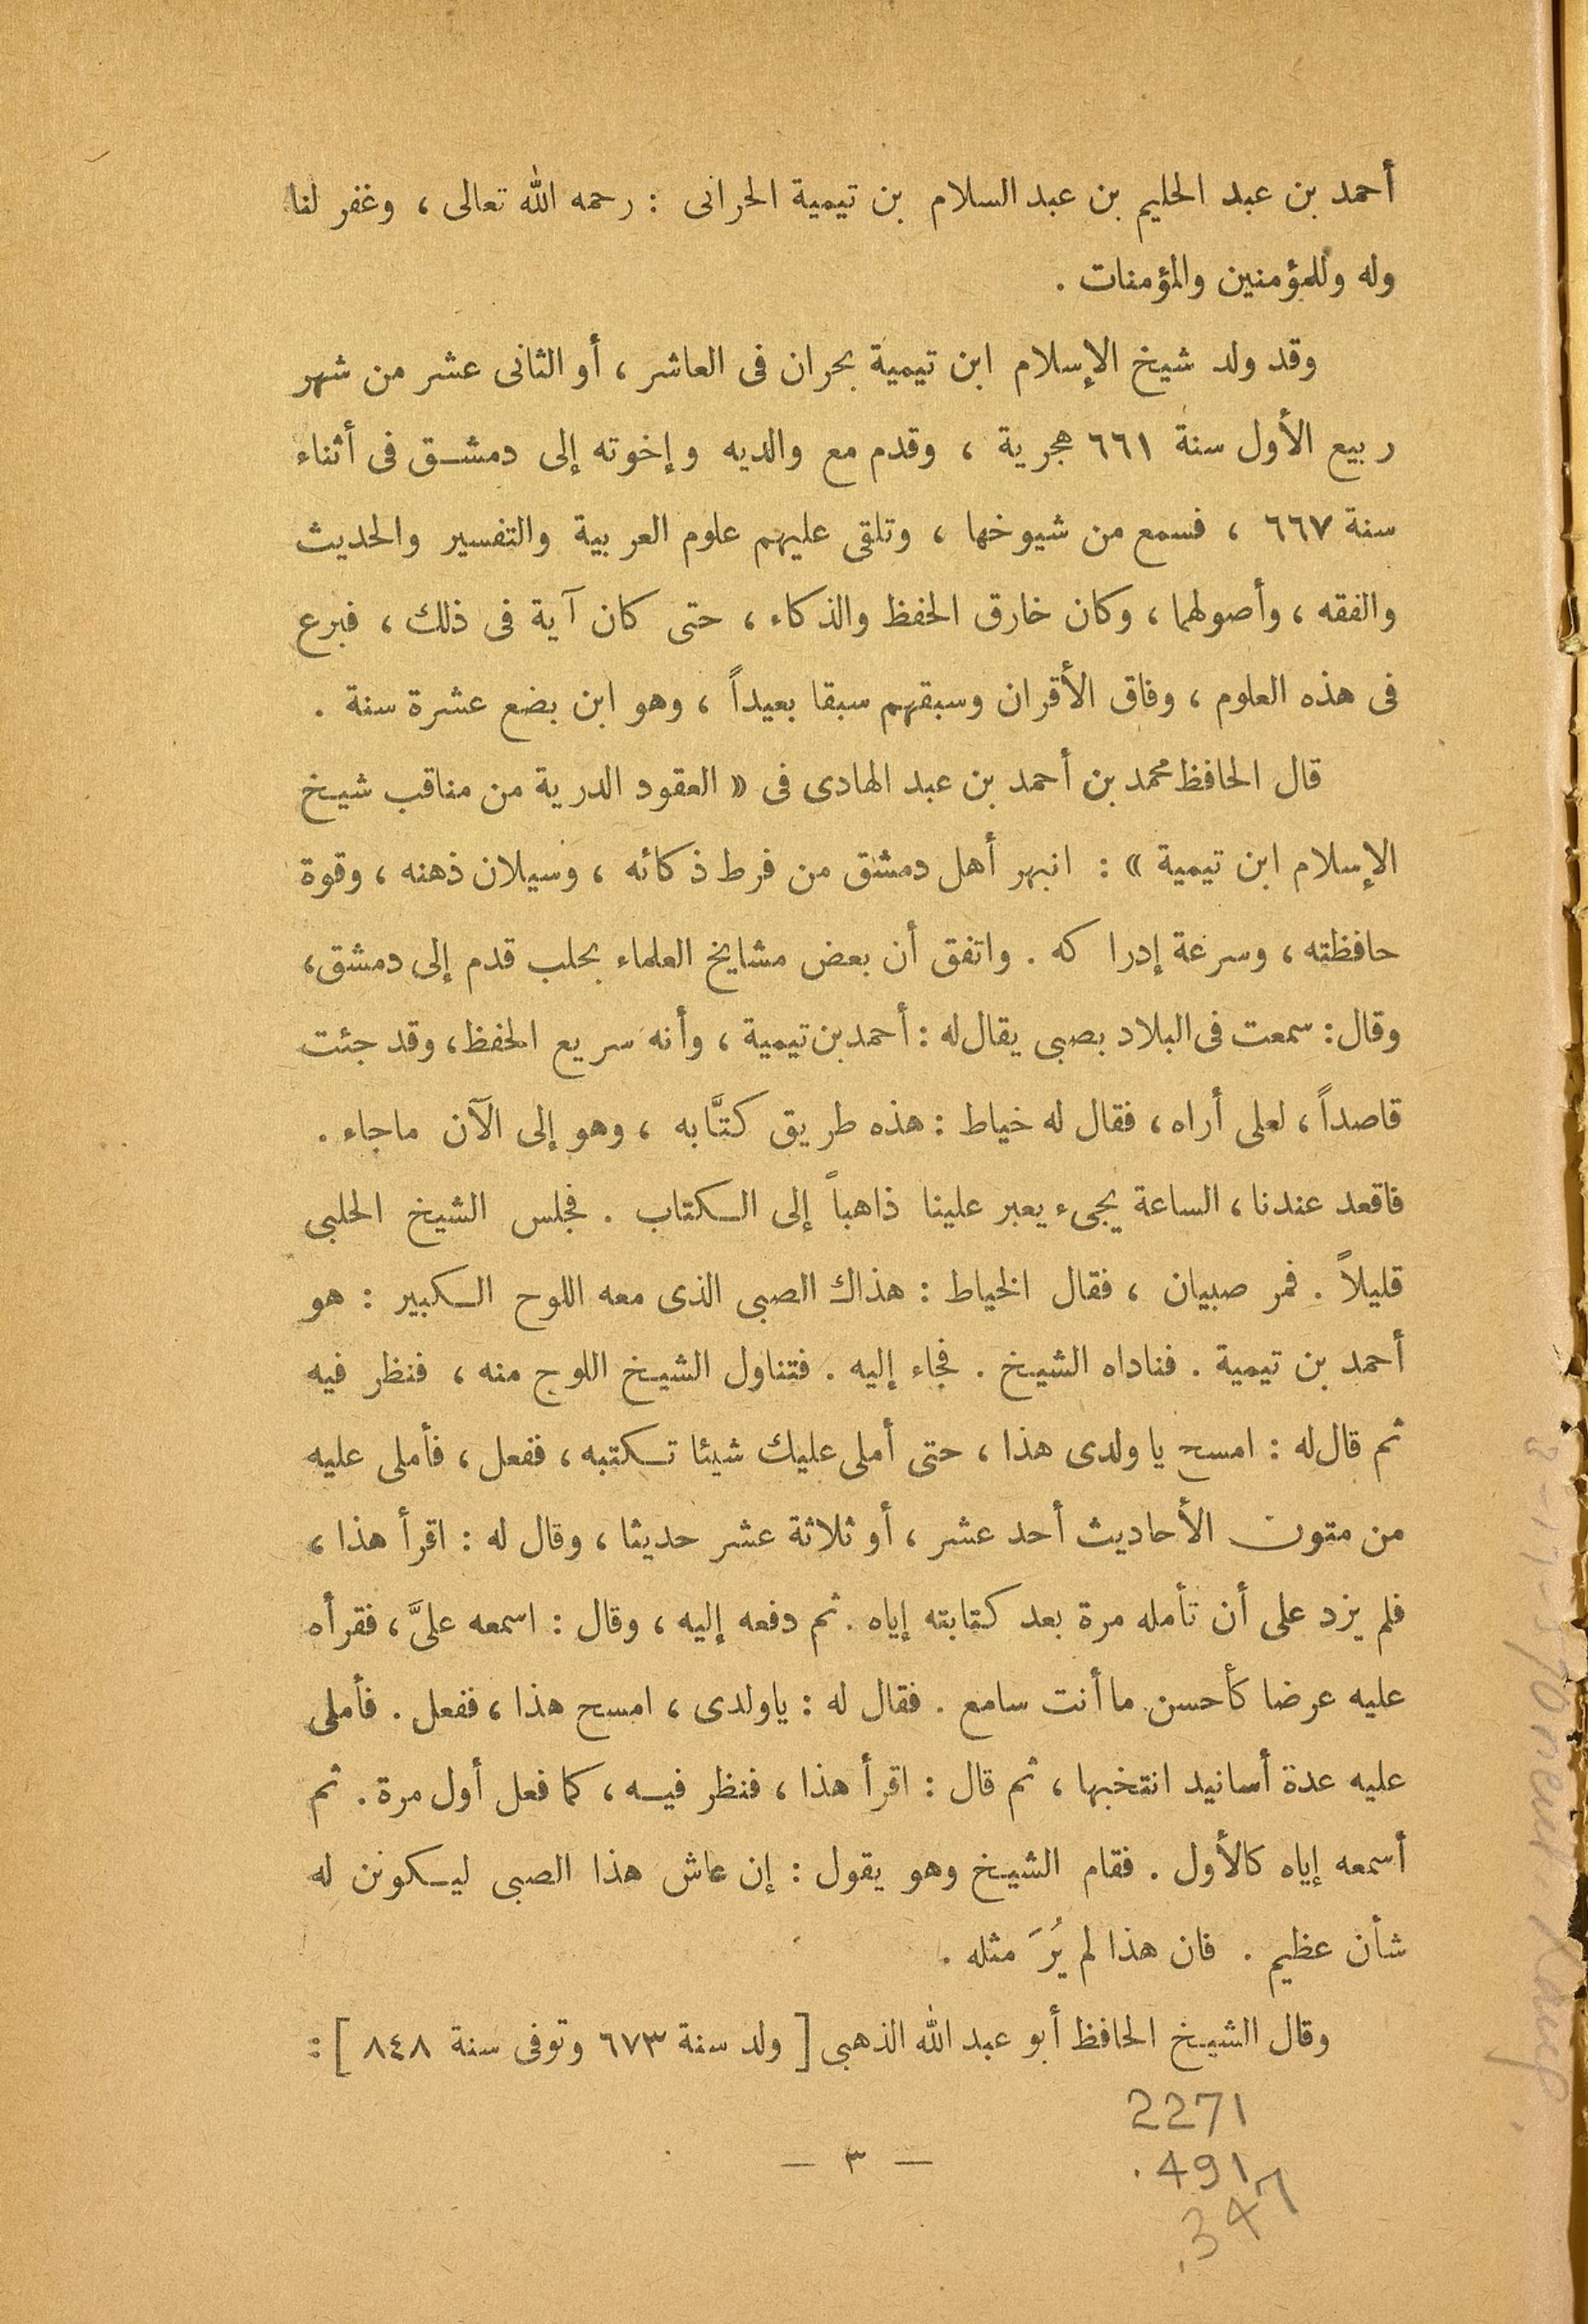 أحمد بن عبد الحليم بن عبد السلام بن تيمية الحرانى : رحمه الله تعالى ، وغفر لنا
وله وللمؤمنين والمؤمنات .
وقد ولد شيخ الإسلام ابن تيمية بحران فى العاشر ، أو الثانى عشر من شهر
ربيع الأول سنة ٦٦١ هجرية ، وقدم مع والديه وإخوته إلى دمشق فى أثناء
سنة ٦٦٧ ، فسمع من شيوخها ، وتلقى عليهم علوم العربية والتفسير والحديث
والفقه ، وأصولهما ، وكان خارق الحفظ والذكاء ، حتى كان آية فى ذلك ، فبرع
فى هذه العلوم ، وفاق الأقران وسبقهم سبقا بعيداً ، وهو ابن بضع عشرة سنة .
قال الحافظ محمد بن أحمد بن عبد الهادى فى « العقود الدرية من مناقب شيخ
الإسلام ابن تيمية » : انبهر أهل دمشق من فرط ذكائه ، وسيلان ذهنه ، وقوة
حافظته ، وسرعة إدراكه . واتفق أن بعض مشايخ العلماء بحلب قدم إلى دمشق ،
وقال : سمعت فى البلاد بصبى يقال له : أحمد بن تيمية ، وأنه سريع الحفظ ، وقد جئت
قاصداً ، لعلى أراه ، فقال له خياط : هذه طريق كتَّابه ، وهو إلى الآن ماجاء .
فاقعد عندنا ، الساعة يجىء يعبر علينا ذاهباً إلى الكتاب . فجلس الشيخ الحلبى
قليلاً . فمر صبيان ، فقال الخياط : هذاك الصبى الذى معه اللوح الكبير : هو
أحمد بن تيمية . فناداه الشيخ . فجاء إليه . فتناول الشيخ اللوح منه ، فنظر فيه
ثم قال له : امسح يا ولدى هذا ، حتى أملى عليك شيئا تكتبه ، ففعل ، فأملى عليه
من متون الأحاديث أحد عشر ، أو ثلاثة عشر حديثا ، وقال له : اقرأ هذا ،
فلم يزد على أن تأمله مرة بعد كتابته إياه . ثم دفعه إليه ، وقال : اسمعه علىَّ ، فقرأه
عليه عرضا كأحسن ما أنت سامع . فقال له : ياولدى ، امسح هذا ، ففعل . فأملى
عليه عدة أسانيد انتخبها ، ثم قال : اقرأ هذا ، فنظر فيه ، كما فعل أول مرة . ثم
أسمعه إياه كالأول . فقام الشيخ وهو يقول : إن عاش هذا الصبى ليكونن له
شأن عظيم . فان هذا لم يُرَ مثله .
وقال الشيخ الحافظ أبو عبد الله الذهبى [ ولد سنة ٦٧٣ وتوفى سنة ٨٤٨ ] :
2271
.491
.347
— ٣ —